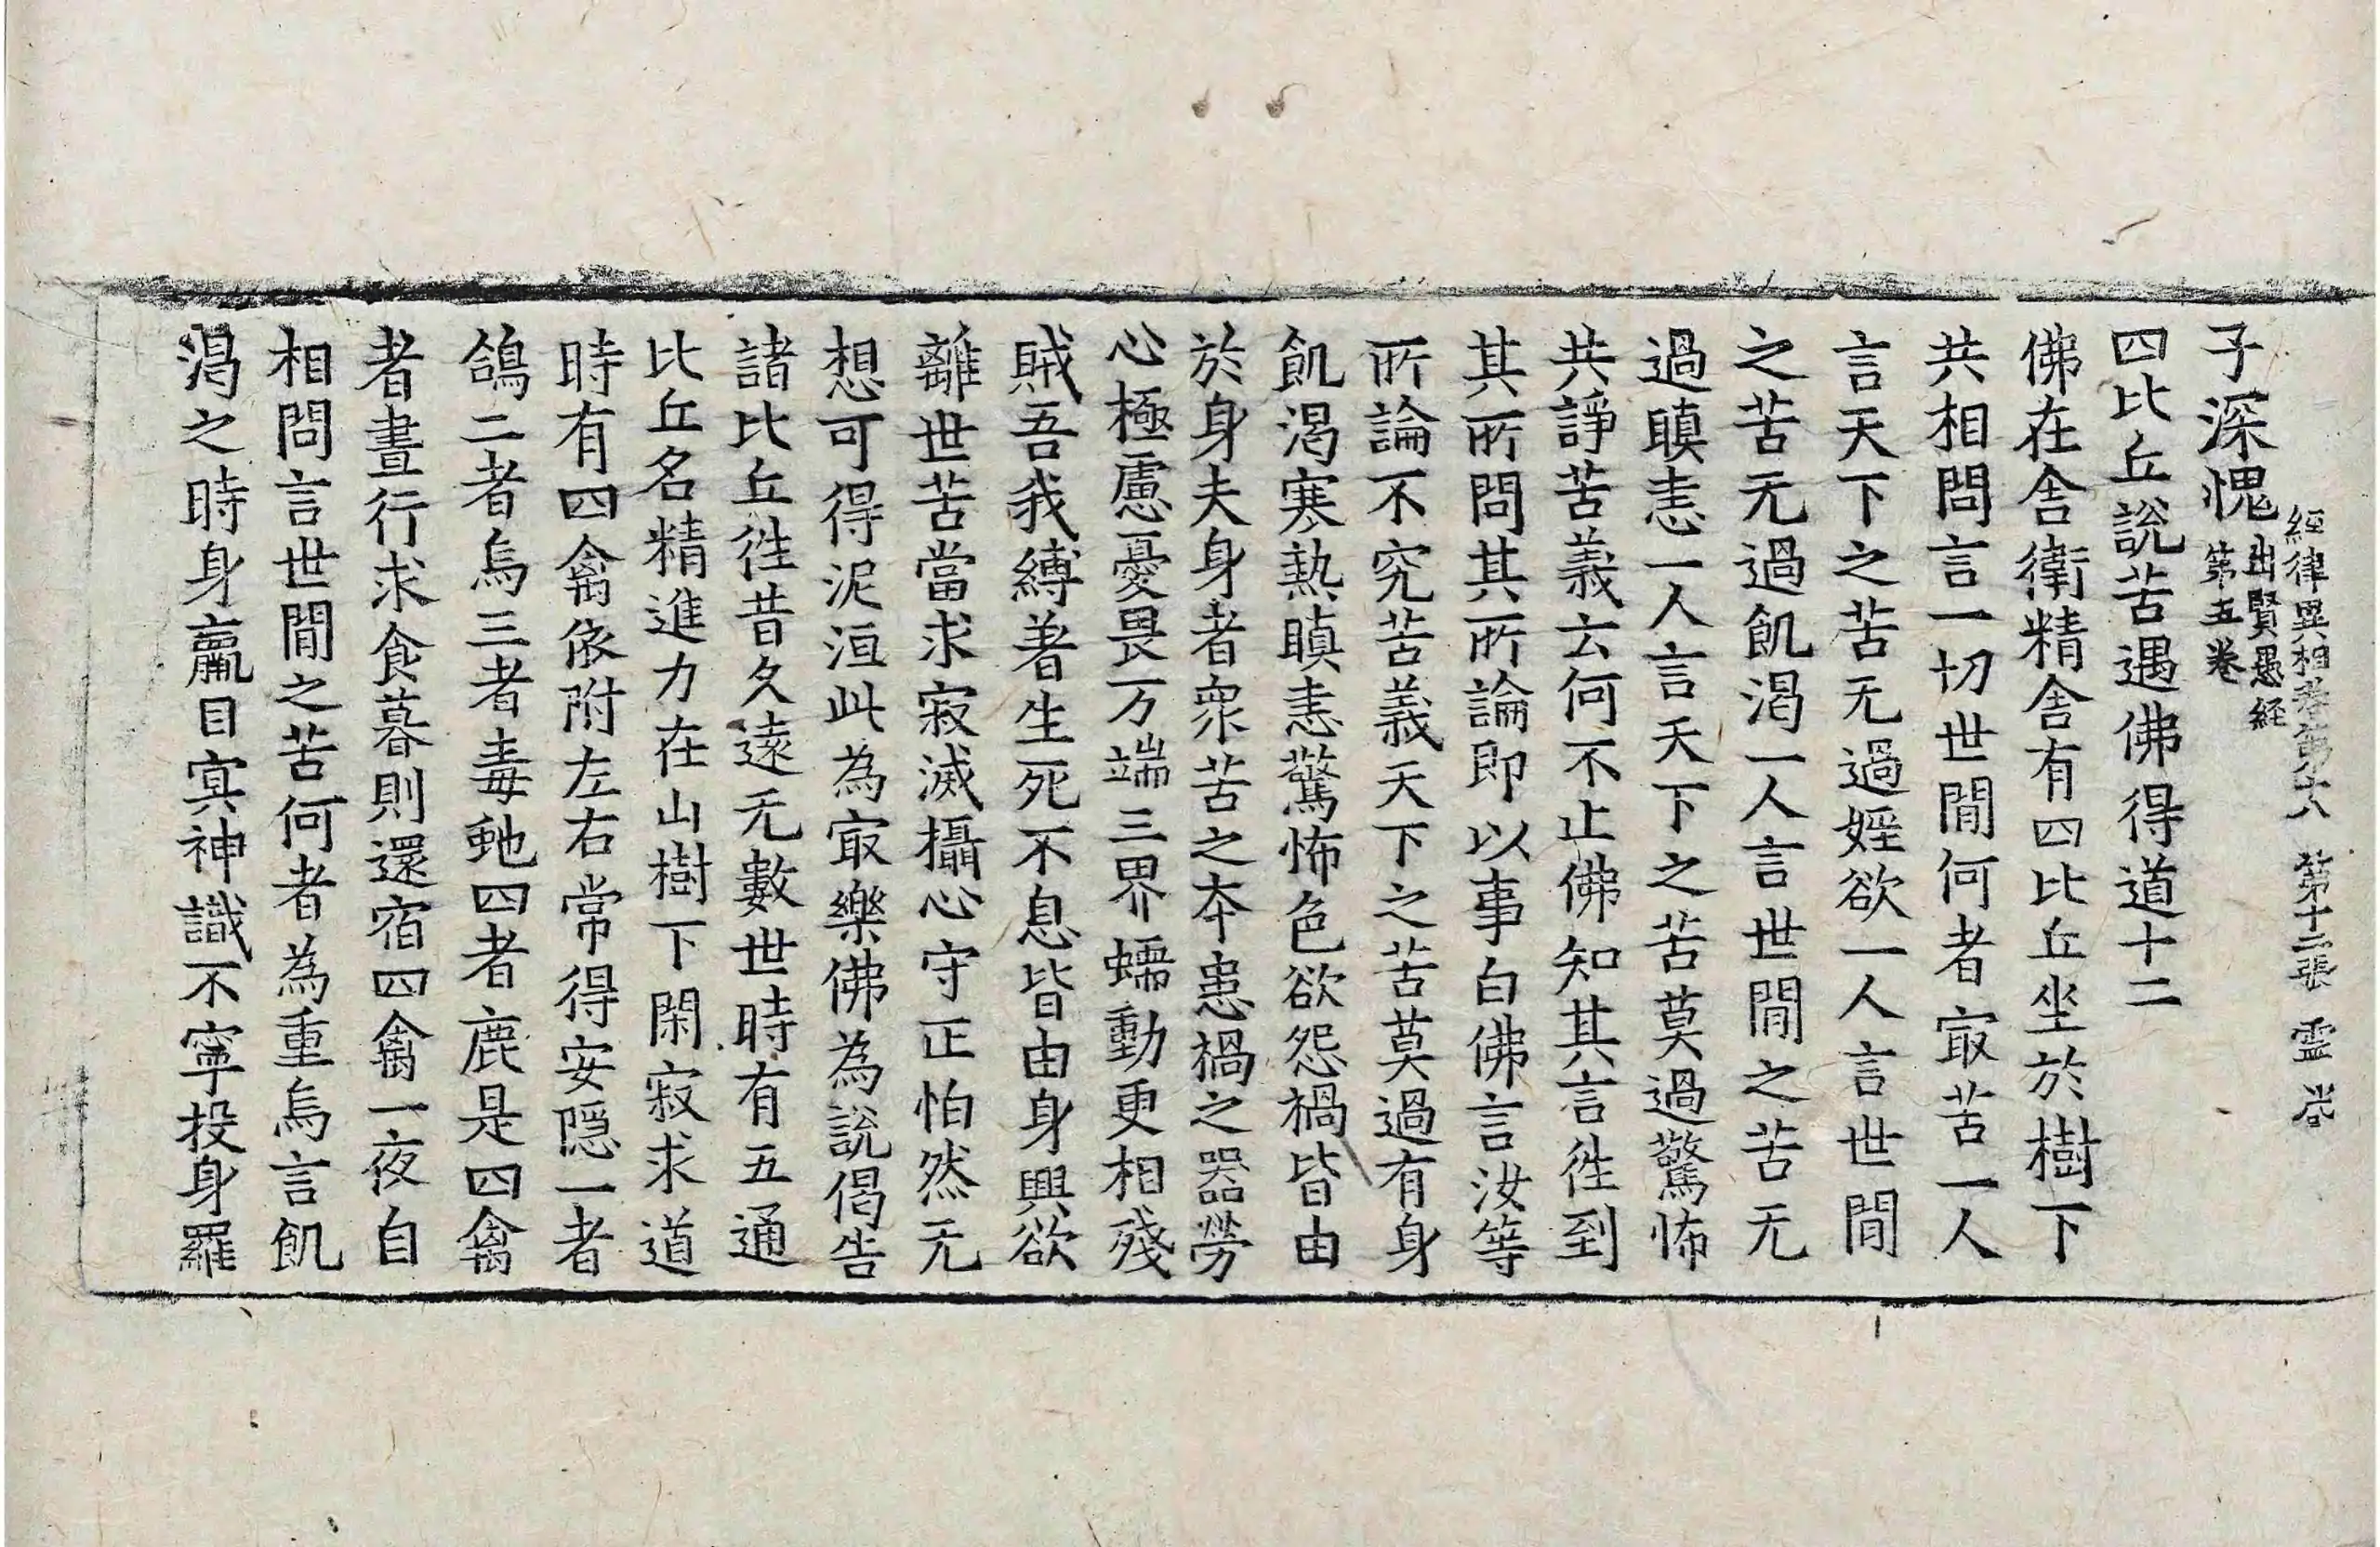 經律異相卷第十八 第十二張 霊
子深愧出賢愚経第五卷
四比丘說苦遇佛得道十二
佛在舍衛精舍有四比丘坐於樹下
共相問言一切世間何者㝡苦一人
言天下之苦无過婬欲一人言世間
之苦无過飢渴一人言世間之苦无
過瞋恚一人言天下之苦莫過驚怖
共諍苦義云何不止佛知其言徃到
其所問其所論即以事白佛言汝等
所論不究苦義天下之苦莫過有身
飢渴寒熱瞋恚驚怖色欲怨禍皆由
於身夫身者衆苦之本患禍之器勞
心極慮憂畏万端三界蠕動更相殘
賊吾我縛著生死不息皆由身興欲
離世苦當求寂滅攝心守正怕然无
想可得泥洹此為㝡樂佛為說偈告
諸比丘徃昔久遠无數世時有五通
比丘名精進力在山樹下閑寂求道
時有四禽依附左右常得安隱一者
鴿二者烏三者毒虵四者鹿是四禽
者晝行求食暮則還宿四禽一夜自
相問言世間之苦何者為重烏言飢
渴之時身羸目冥神識不寧投身羅